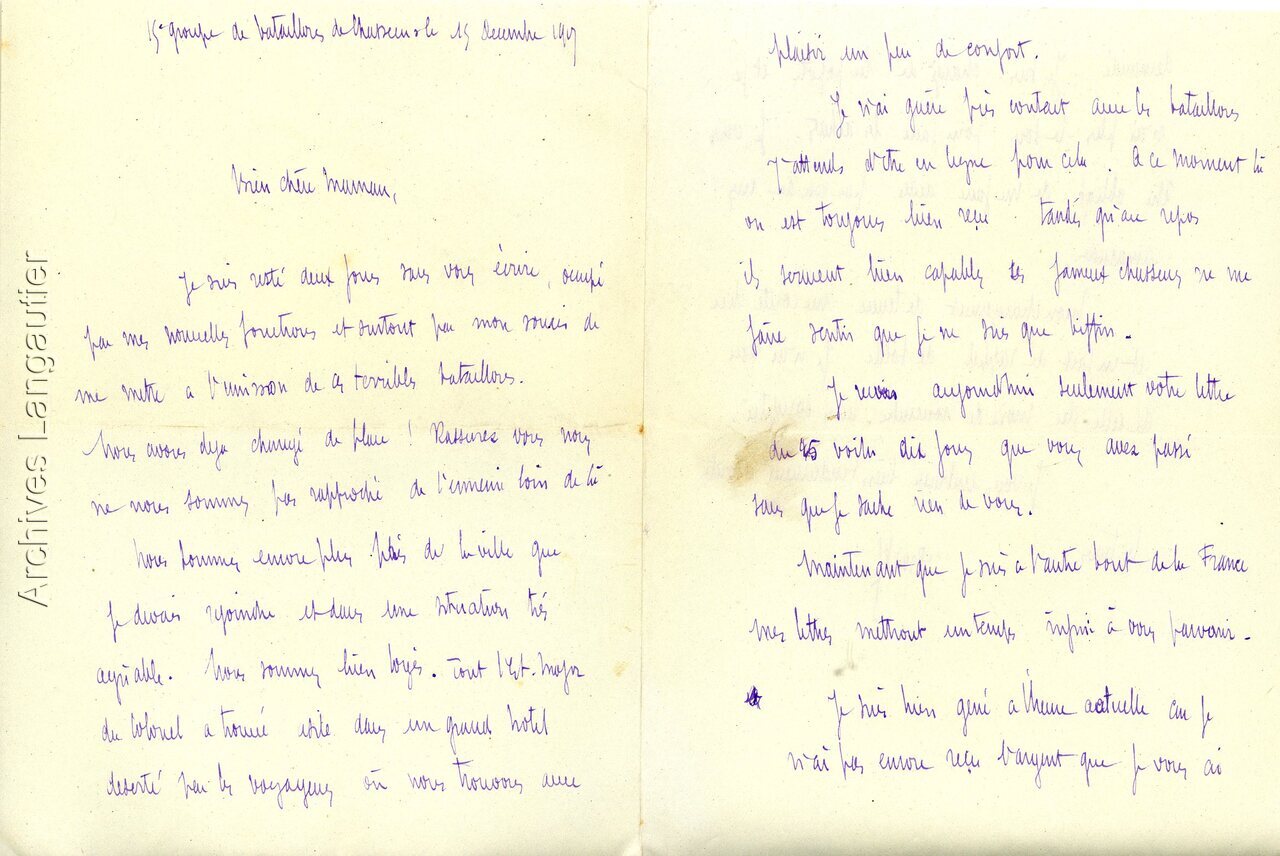 15e groupe de bataillons de chasseurs le 15 Decembre 1917
Bien chère Maman,
Je suis resté deux jours sans vous écrire, occupé
par mes nouvelles fonctions et surtout par mon soucis de
me mettre a l'unisson de ces terribles bataillons.
Nous avons deja changé de place ! Rassurez vous nous
ne nous sommes pas rapproché de l'ennemi loin de là
Nous sommes encore plus près de la ville que
je devais rejoindre et dans une situation très
agréable. Nous sommes bien logés. Tout l'Etat-Major
du Colonel a trouvé asile dans un grand hotel
deserté par les voyageurs où nous trouvons avec
plaisir un peu de confort.
Je n'ai guère pris contact avec les bataillons
J'attends d'être en ligne pour cela. A ce moment là
on est toujours bien reçu tandis qu'au repos
ils seraient bien capables ces fameux chasseurs de me
faire sentir que je ne suis que biffin.
Je reçois aujourd'hui seulement votre lettre
du 5 voila dix jours que vous avez passé
sans que je sache rien de vous.
Maintenant que je suis a l'autre bout de la France
mes lettres mettront un temps infini à vous parvenir.
Je suis bien gené a l'heure actuelle car je
n'ai pas encore reçu l'argent que je vous ai
Archives Langautier